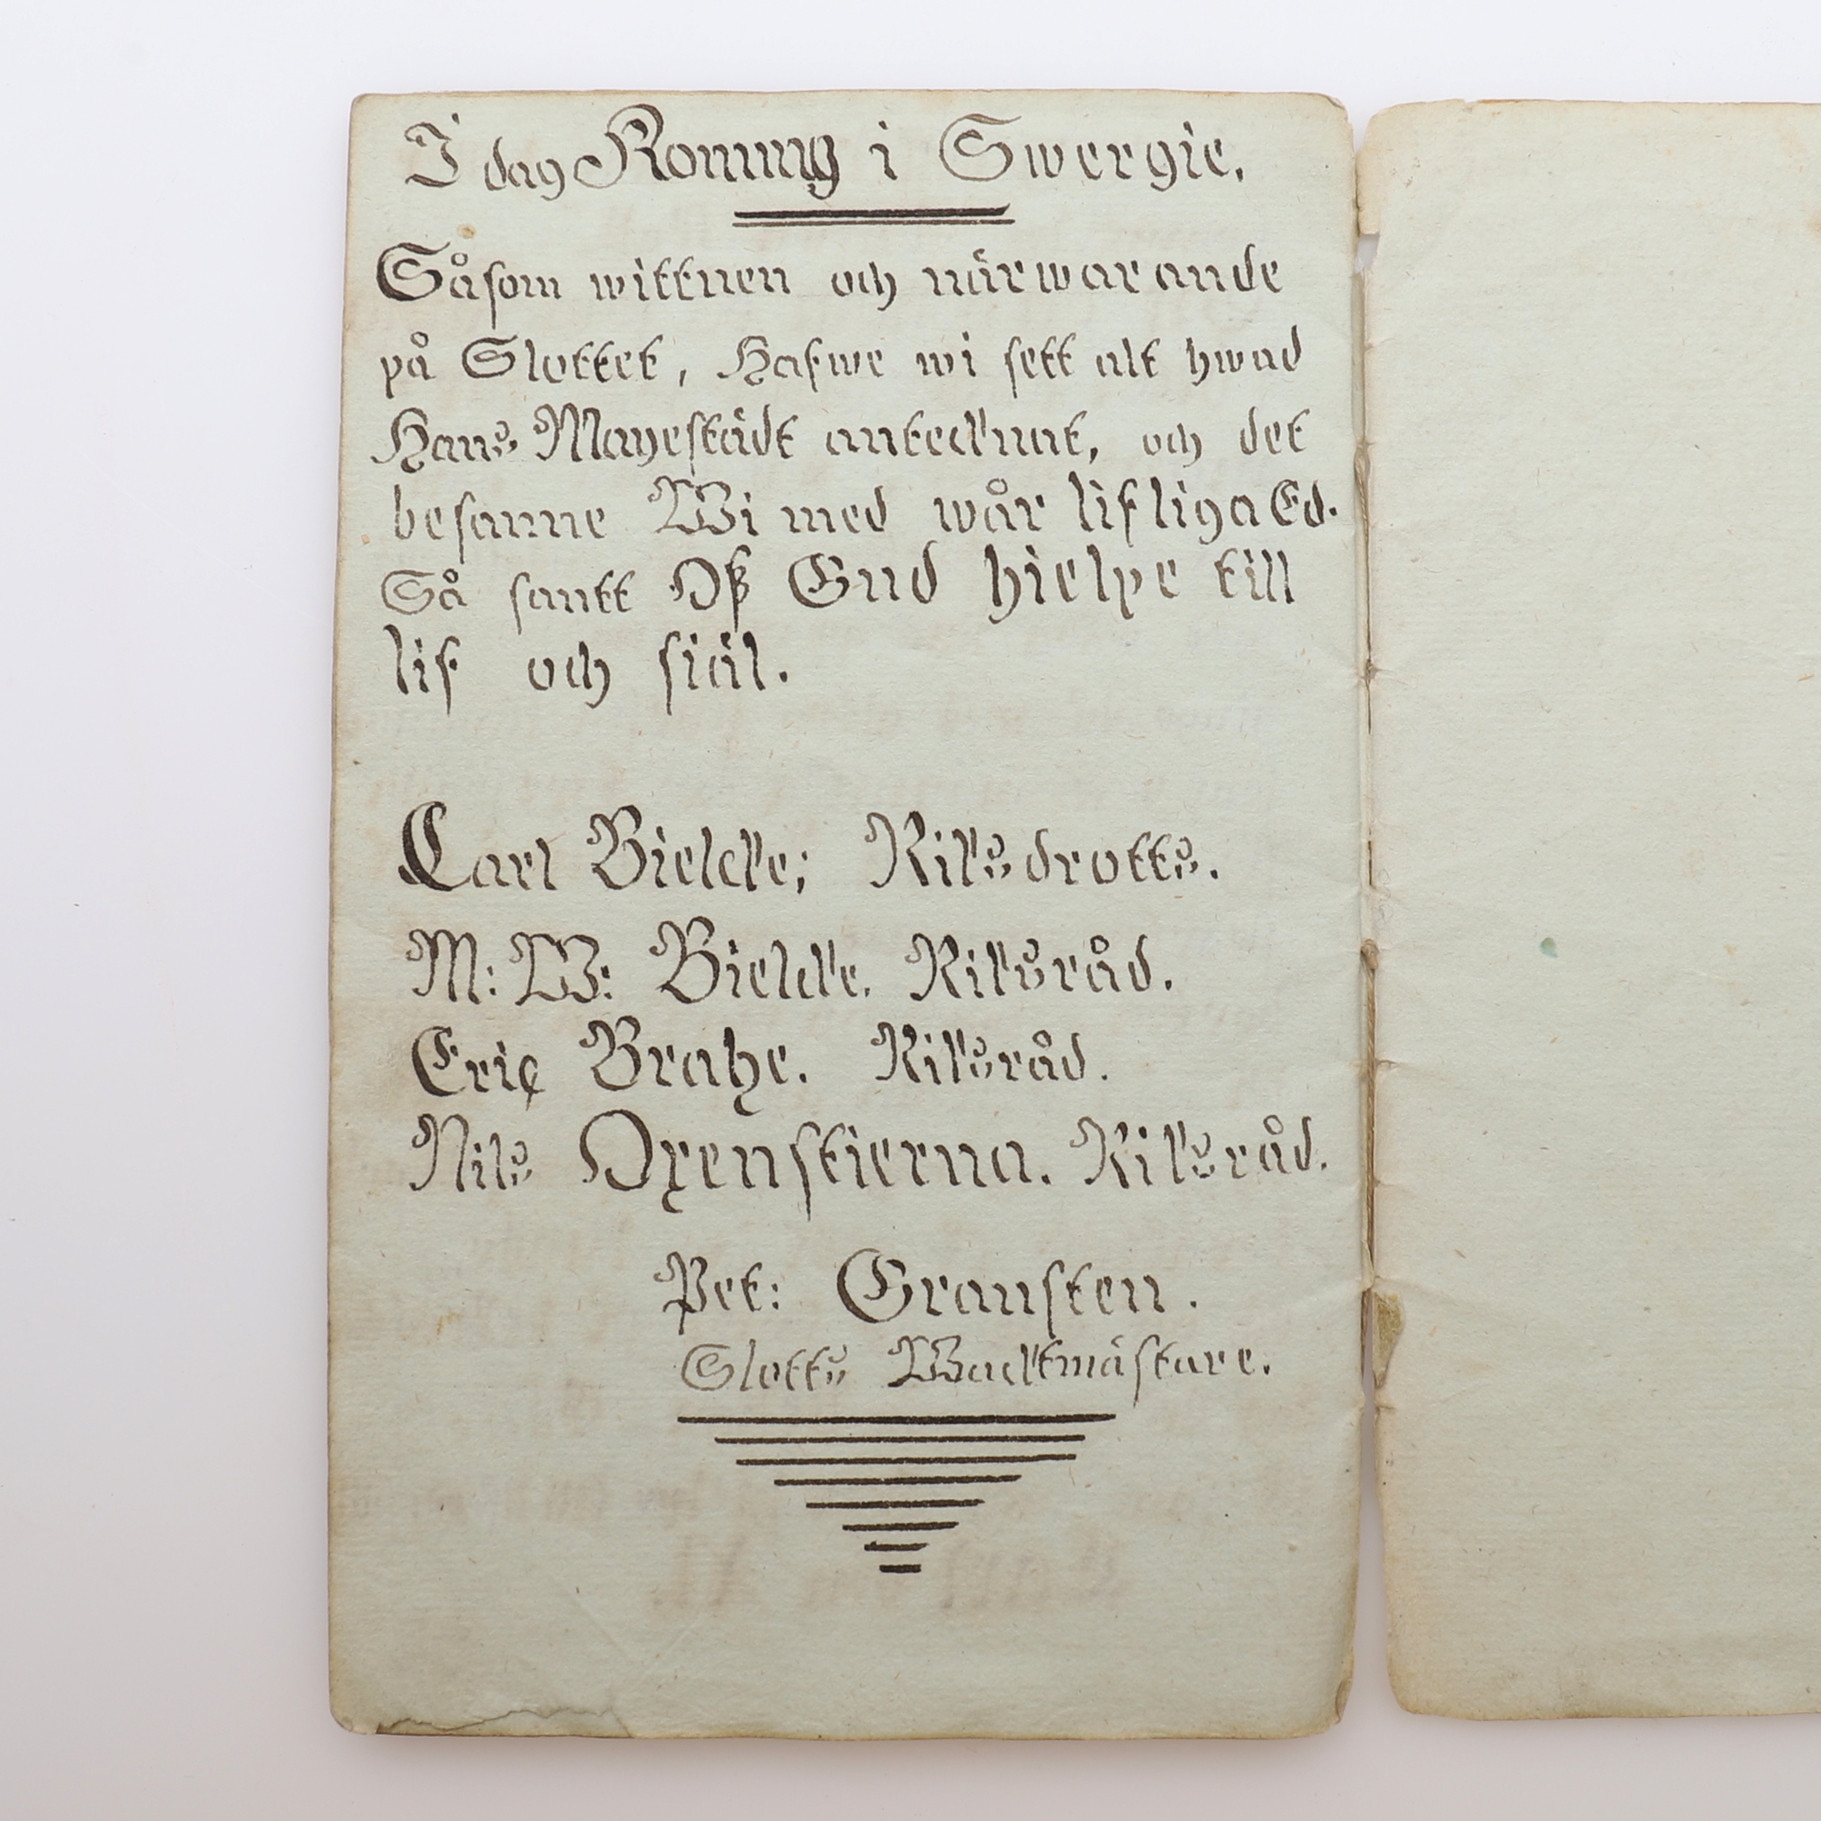 I dag Konung i Swergie.
Såsom wittnen och närwarande
på Slottet, Hafwe wi sett alt hwad
Hans Mayestädt antecknat, och det
besanne Wi med wår lifliga Ed.
Så santt Oß Gud hielpe till
lif och siäl.
Carl Bielcke; Riksdrotts.
M: W: Bielcke. Riksråd.
Eric Brahe. Riksråd.
Nils Oxenstierna. Riksråd.
Pet: Gransten.
Slotts Wacktmästare.